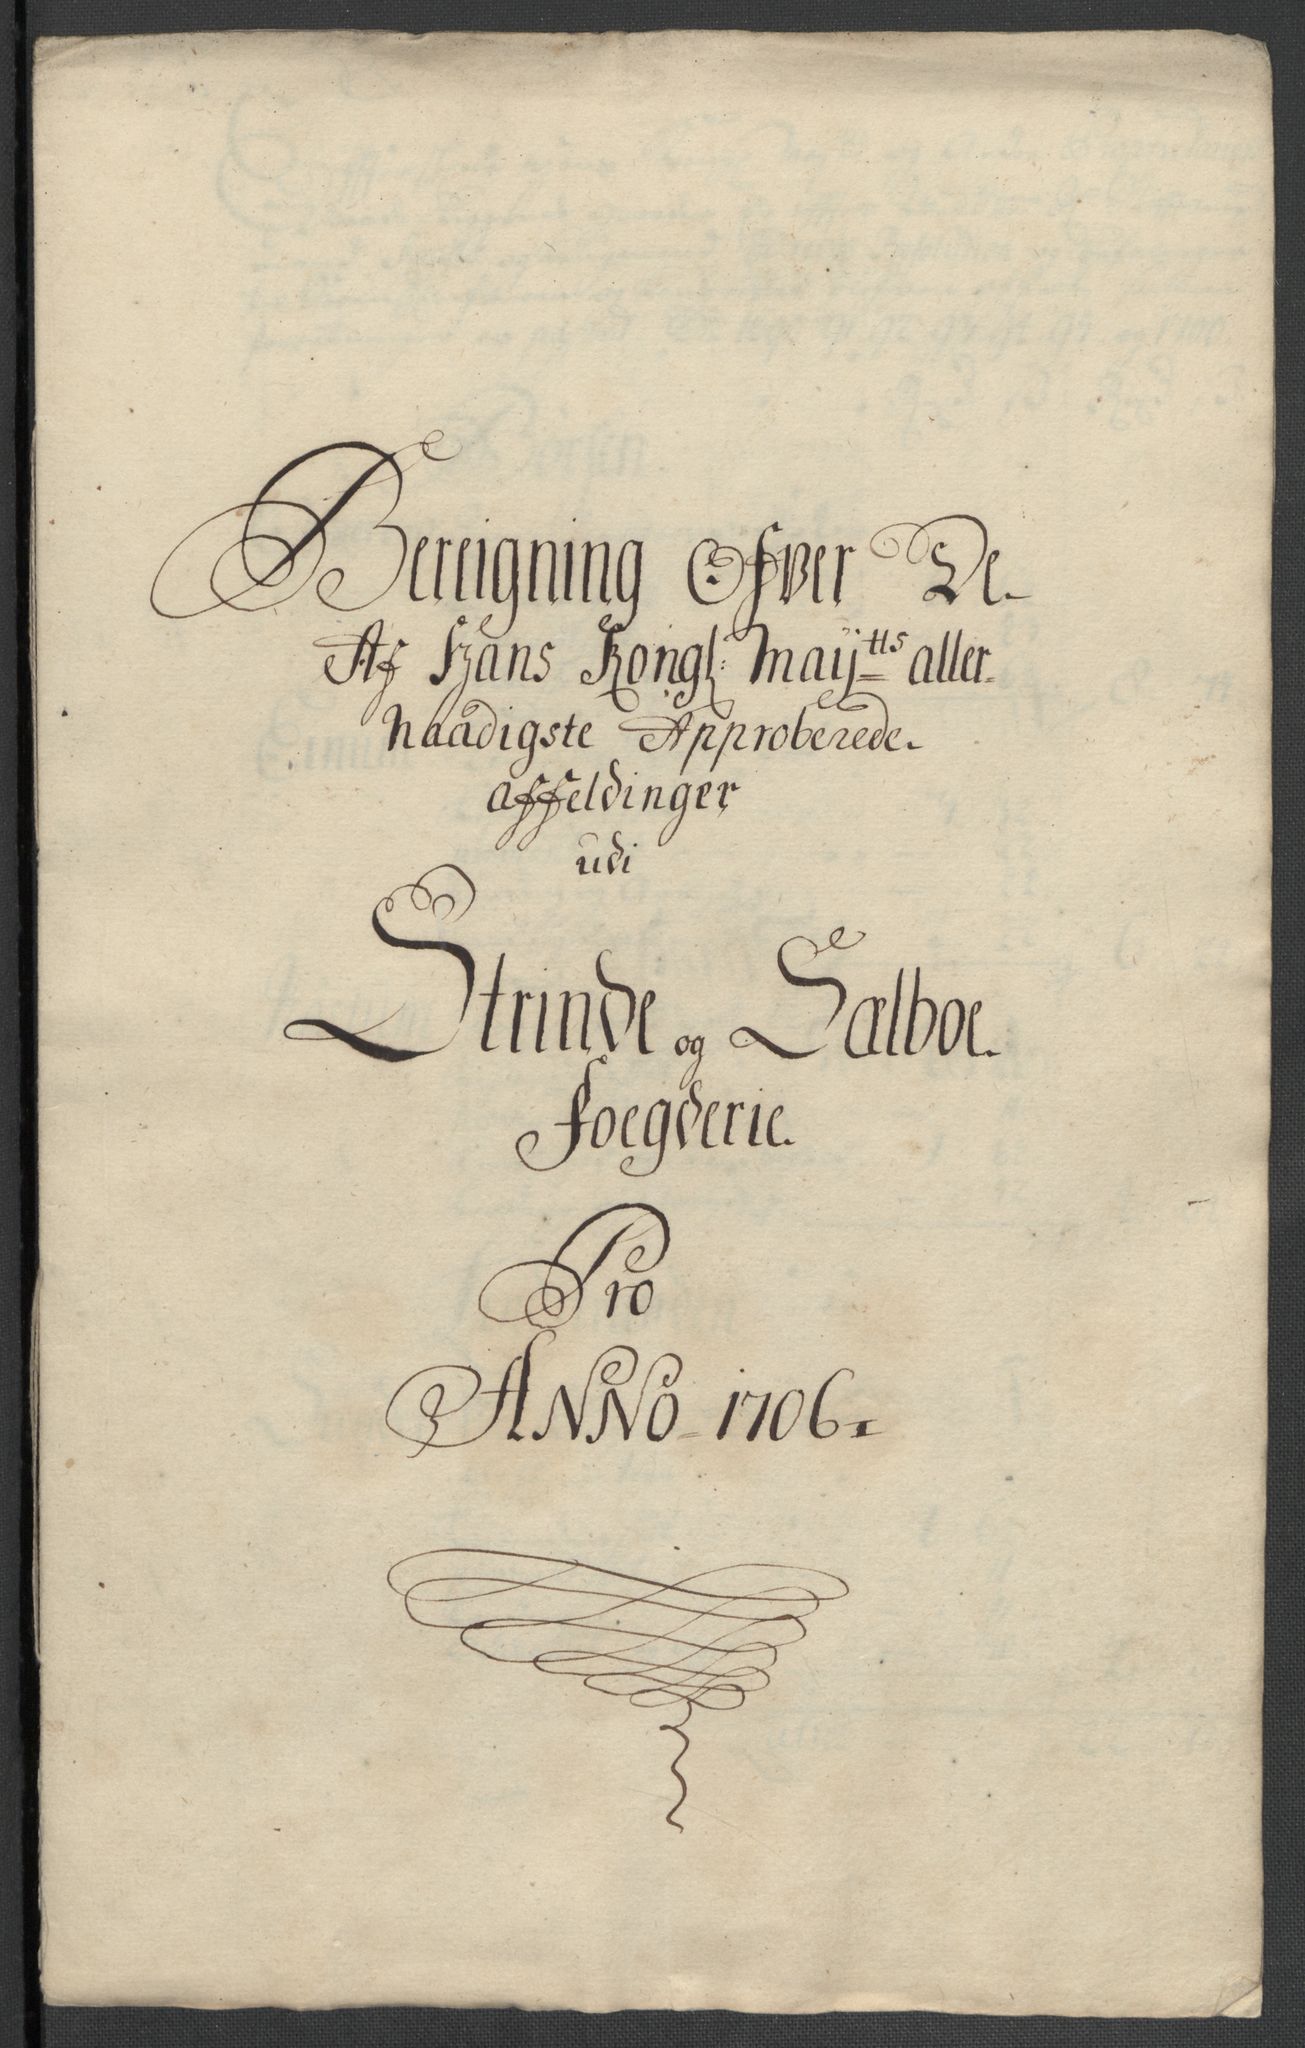 Bereigning Ofver De
Af Hans Kongl: Maÿ<sup>tts</sup> aller
Naadigste Approberede
affeldinger
udi
Strinde og Sælboe
Foegderie.
Pro
ANNO 1706.